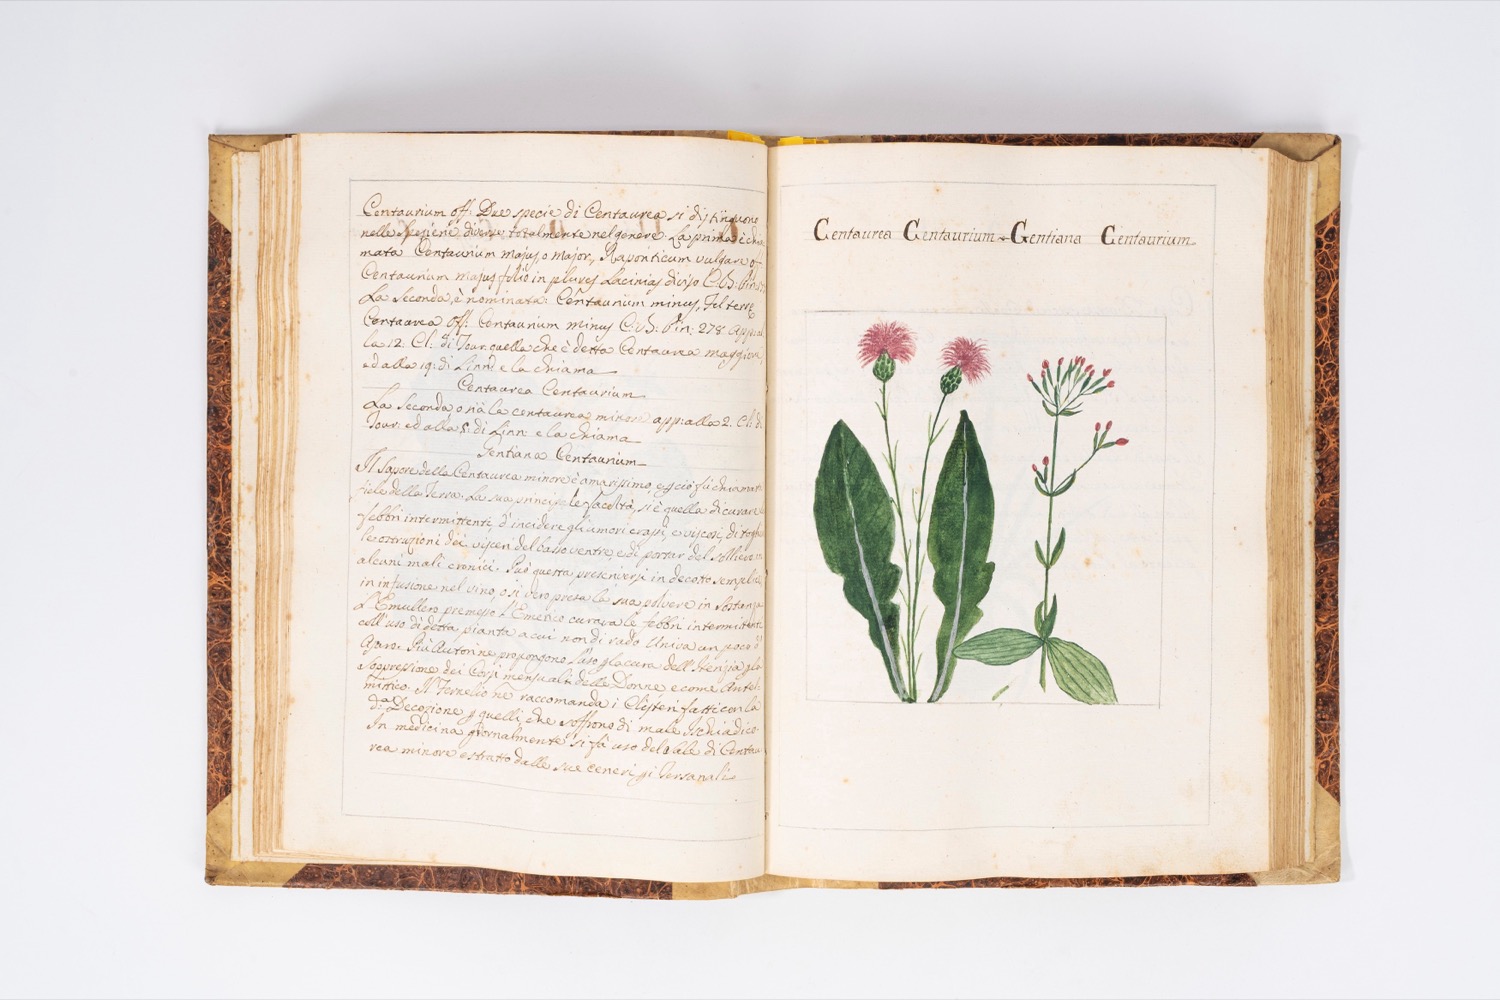 Centaurium off: Due specie di Centaurea si distinguono
nelle Spezierie diverse totalmente nel genere. La prima è chia-
mata Centaurium majus, o major, Raponticum vulgare off:
Centaurium majus folio in plures Lacinias diviso C.B: Pin:
La Seconda, è nominata: Centaurium minus, Fel terrę
Centaurea off: Centaurium minus C: B: Pin: 278. App: al
la 12. Cl: di Tour: quella che è detta Centaurea maggiore,
ed alla 19: di Linn: e la chiama
Centaurea Centaurium
La Seconda o sia la centaurea minore app: alla 2. Cl: di
Tour: ed alla 5: di Linn: e la chiama
Gentiana Centaurium
Il Sapore della Centaurea minore è amarissimo, e p ciò fù chiamata
fiele della Terra. La sua principale facoltà, si è quella di curare le
febbri intermittenti, d'incidere gli umori crassi, e viscosi, di togliere
le ostruzioni dei visceri del basso ventre, e di portar del sollievo in
alcuni mali cronici. Può questa prescriversi in decotto semplice,
in infusione nel vino, o si vero presa la sua polvere in sostanza
L'Emullero premesso l'Emetico curava le febbri intermittenti
coll'uso di detta pianta a cui non di rado Univa un poco d'
Agaro. Più Autori ne propongono l'uso p la cura dell'Iterizia p la
Soppressione dei Corsi mensuali delle Donne e come Antel-
mitico. Il Fernelio ne raccomanda i Clisteri fatti con la
d:a Decozione p quelli, che soffrono di male Ischiadico.
In medicina giornalmente si fà uso del sale di Centau-
rea minore estratto dalle sue ceneri
Centaurea Centaurium - Gentiana Centaurium